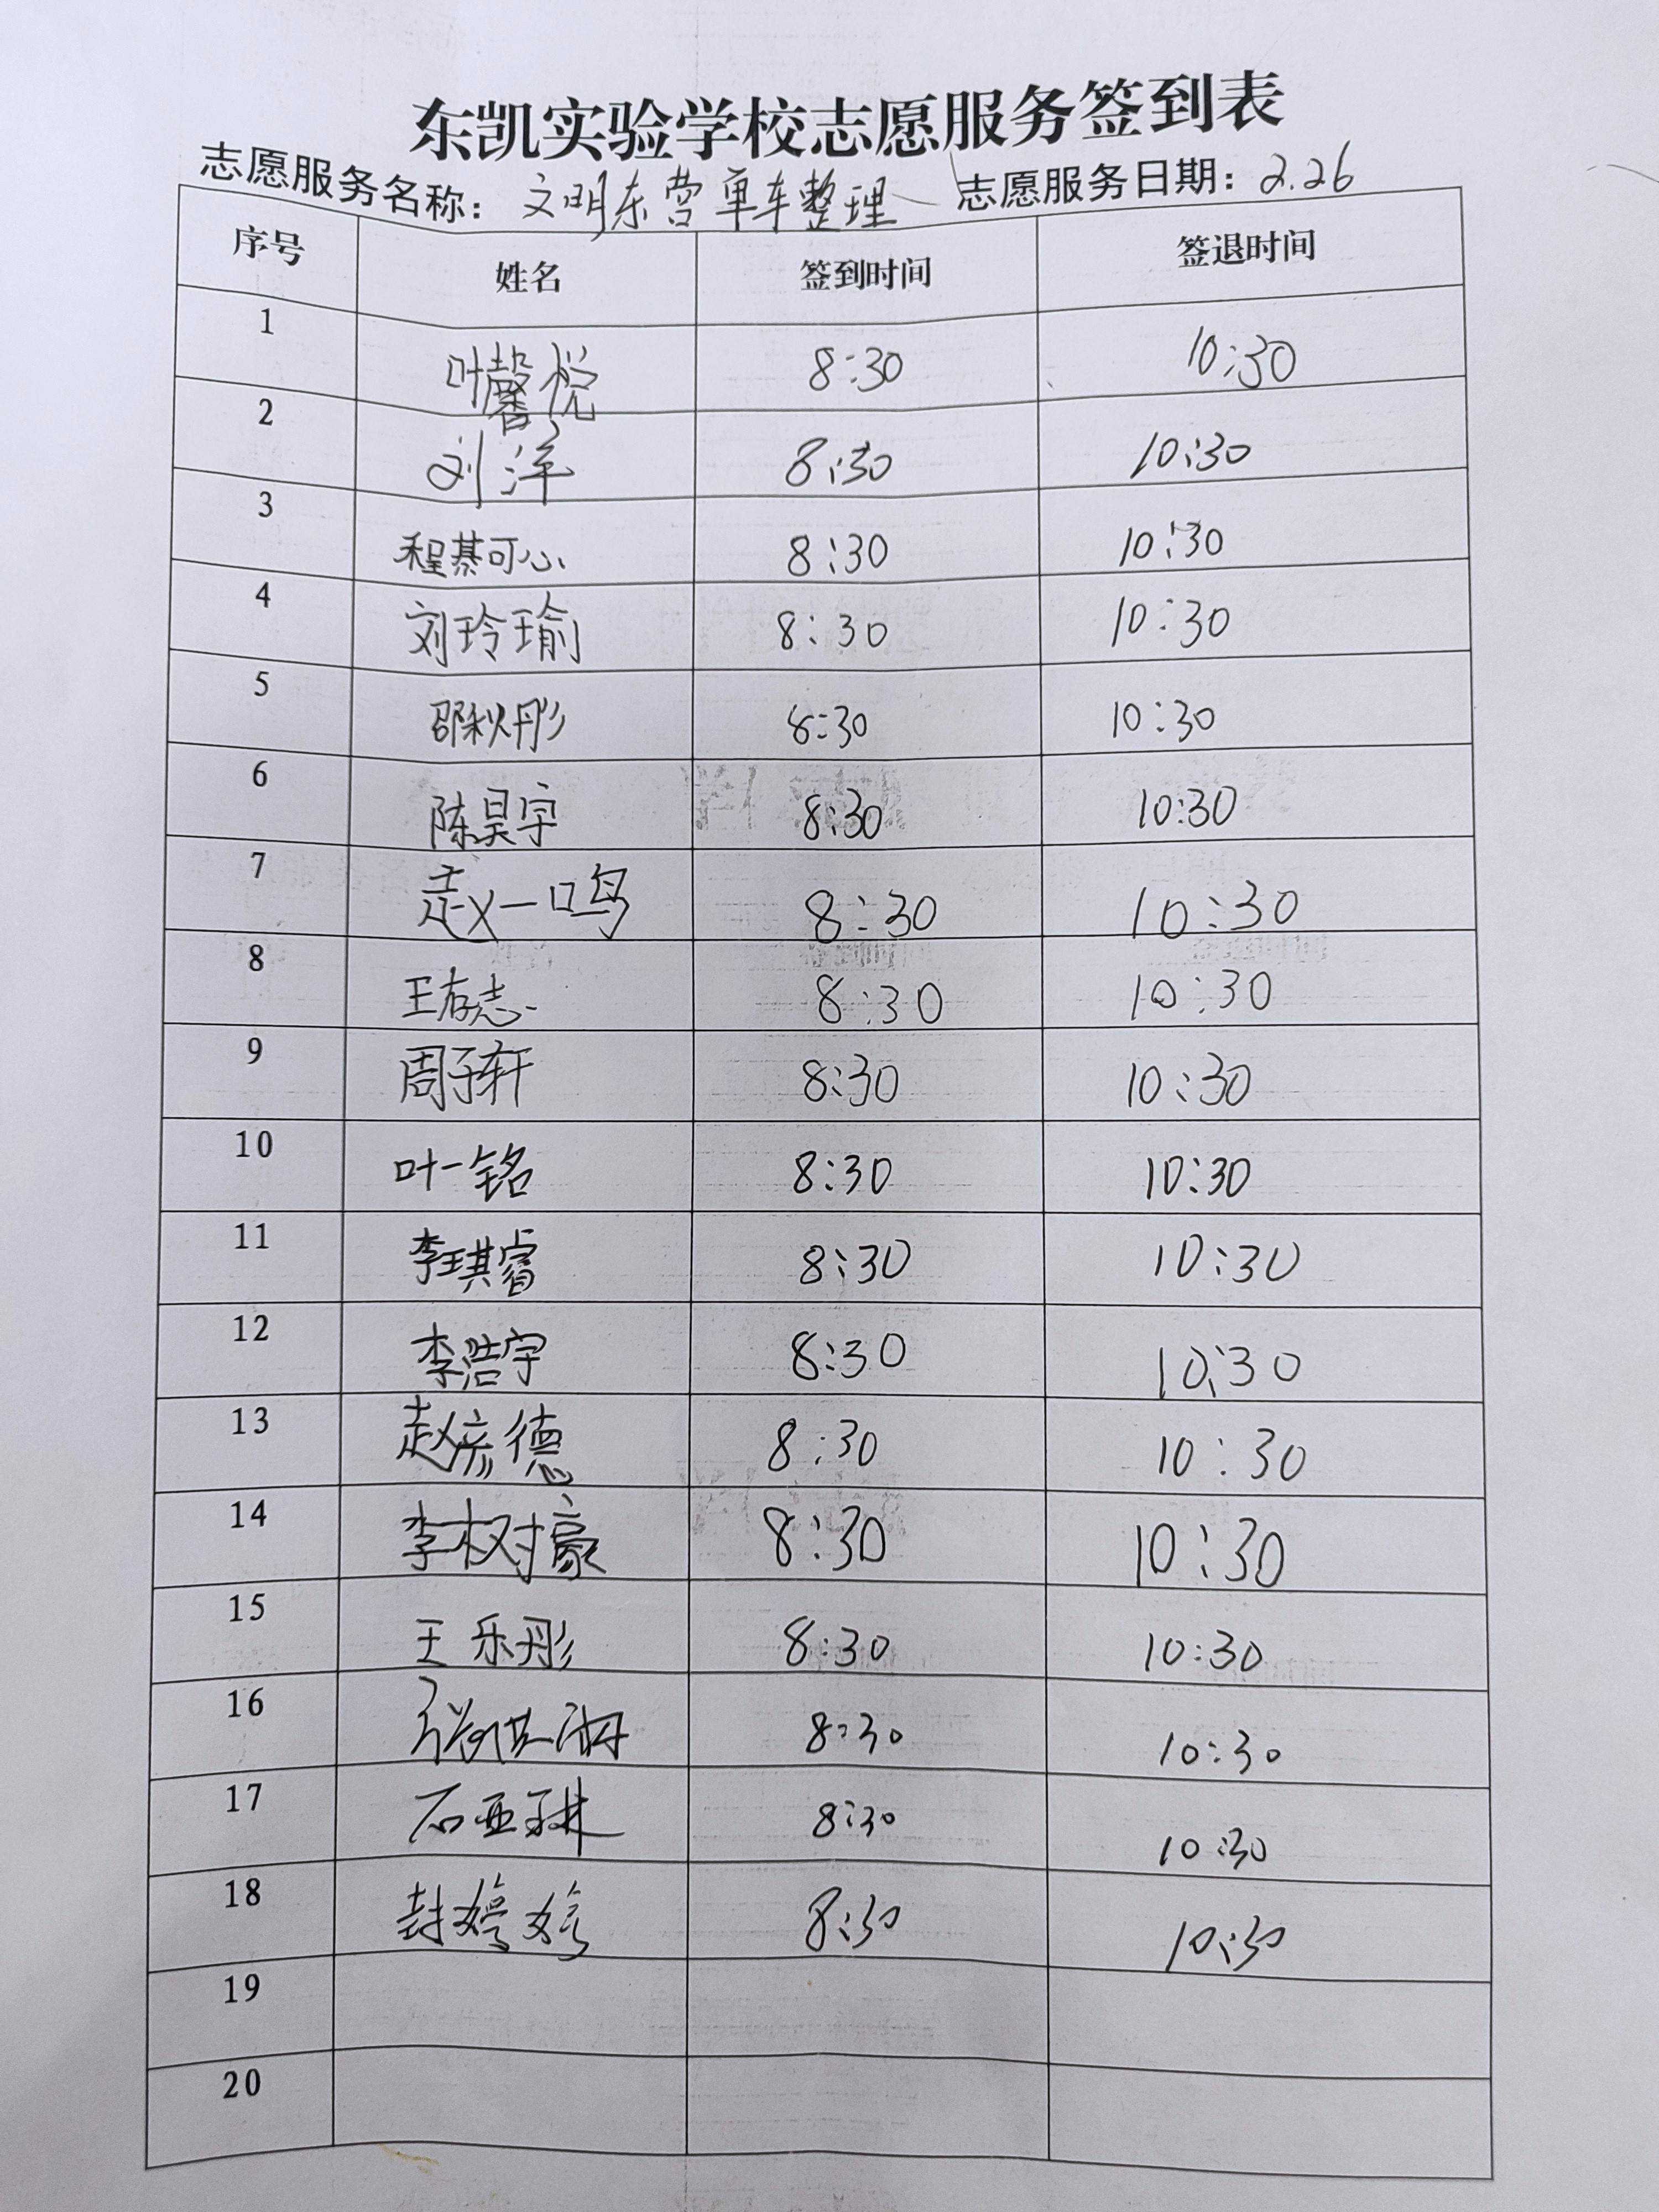 东凯实验学校志愿服务签到表
志愿服务名称：文明东营单车整理 志愿服务日期：2.26
序号 姓名 签到时间 签退时间
1 叶馨悦 8:30 10:30
2 刘洋 8:30 10:30
3 程綦可心 8:30 10:30
4 刘玲瑜 8:30 10:30
5 邵秋彤 8:30 10:30
6 陈昊宇 8:30 10:30
7 赵一鸣 8:30 10:30
8 王存志 8:30 10:30
9 周子轩 8:30 10:30
10 叶一铭 8:30 10:30
11 李琪睿 8:30 10:30
12 李浩宇 8:30 10:30
13 赵彦德 8:30 10:30
14 李树豪 8:30 10:30
15 王乐彤 8:30 10:30
16 张洪海 8:30 10:30
17 石亚琳 8:30 10:30
18 封婷婷 8:30 10:30
19
20